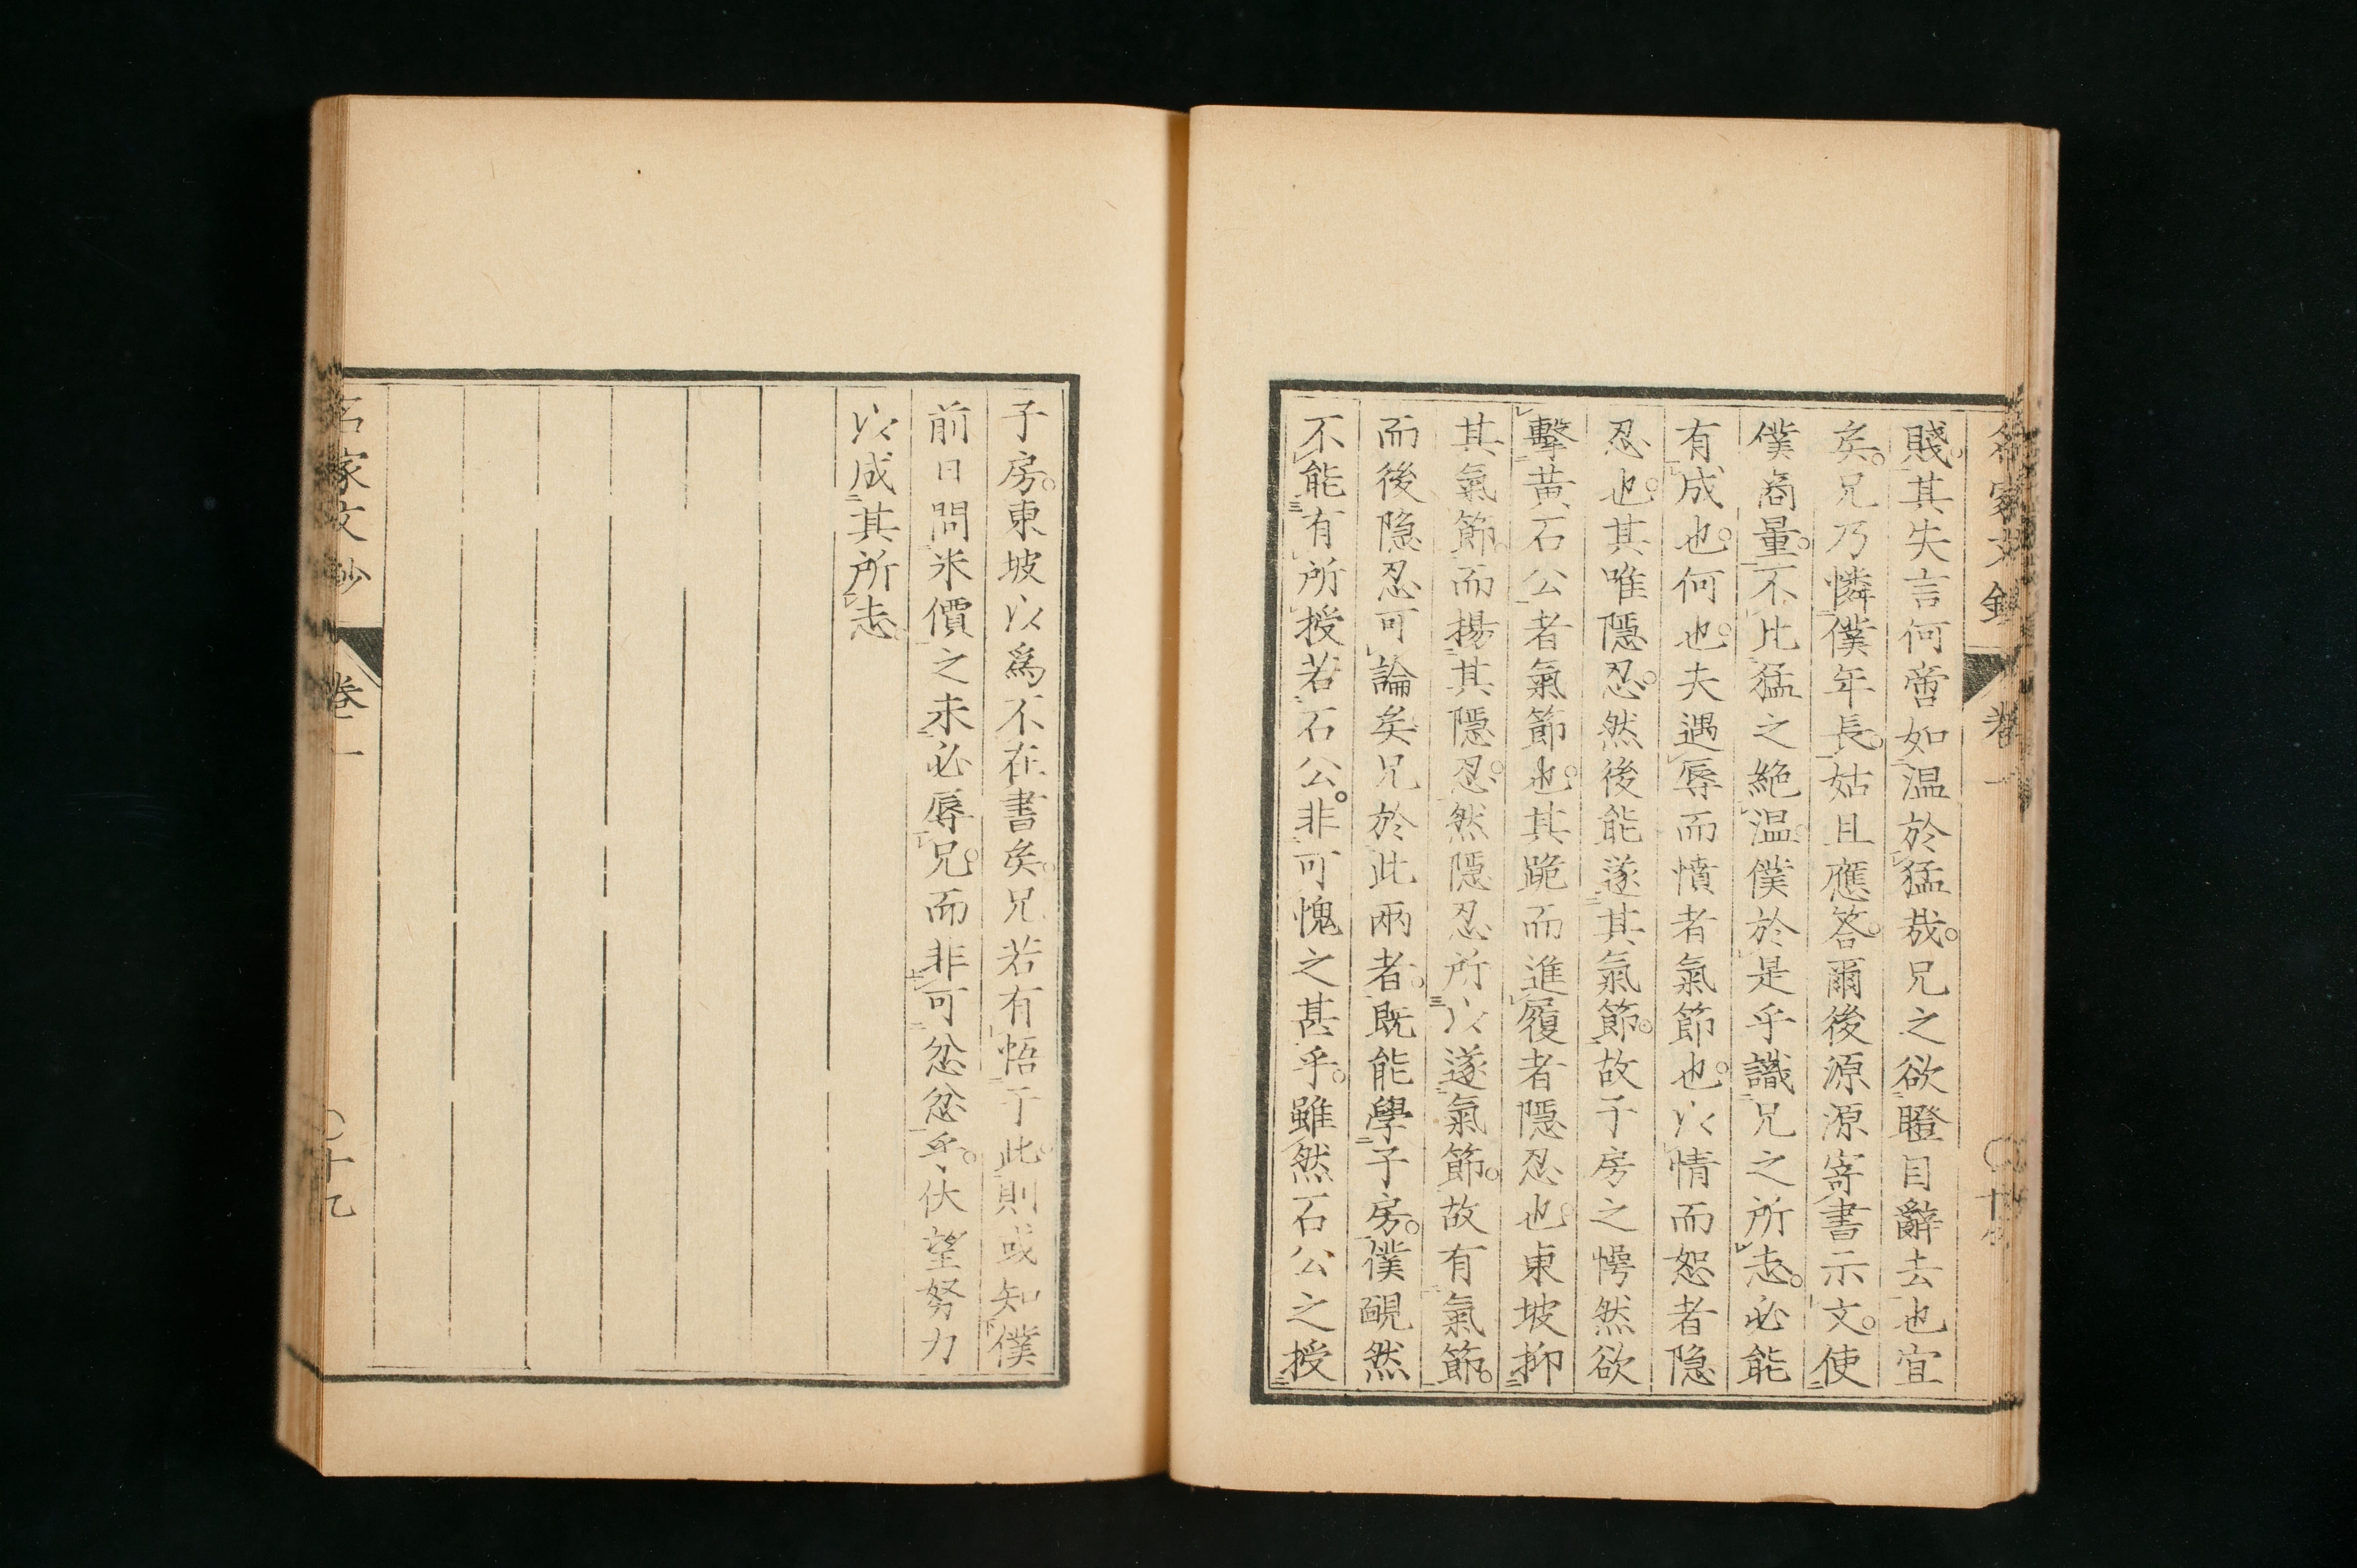 名家文鈔 卷一 〇十
賤其失言何啻如温於猛哉兄之欲瞪目辭去也宜
矣兄乃憐僕年長姑且應答爾後源源寄書示文使
僕商量不比猛之絶温僕於是乎識兄之所志必能
有成也何也夫遇辱而憤者氣節也以情而恕者隐
忍也其唯隱忍然後能遂其氣節故子房之愕然欲
擊黃石公者氣節也其跪而進履者隱忍也東坡抑
其氣節而揚其隱忍然隱忍所以遂氣節故有氣節
而後隐忍可論矣兄於此兩者既能學子房僕靦然
不能有所授若石公非可愧之甚乎雖然石公之授
子房東坡以爲不在書矣兄若有悟于此則或知僕
前日問米價之未必辱兄而非可忿忿乎伏望努力
以成其所志
名家文鈔 卷一 〇十九